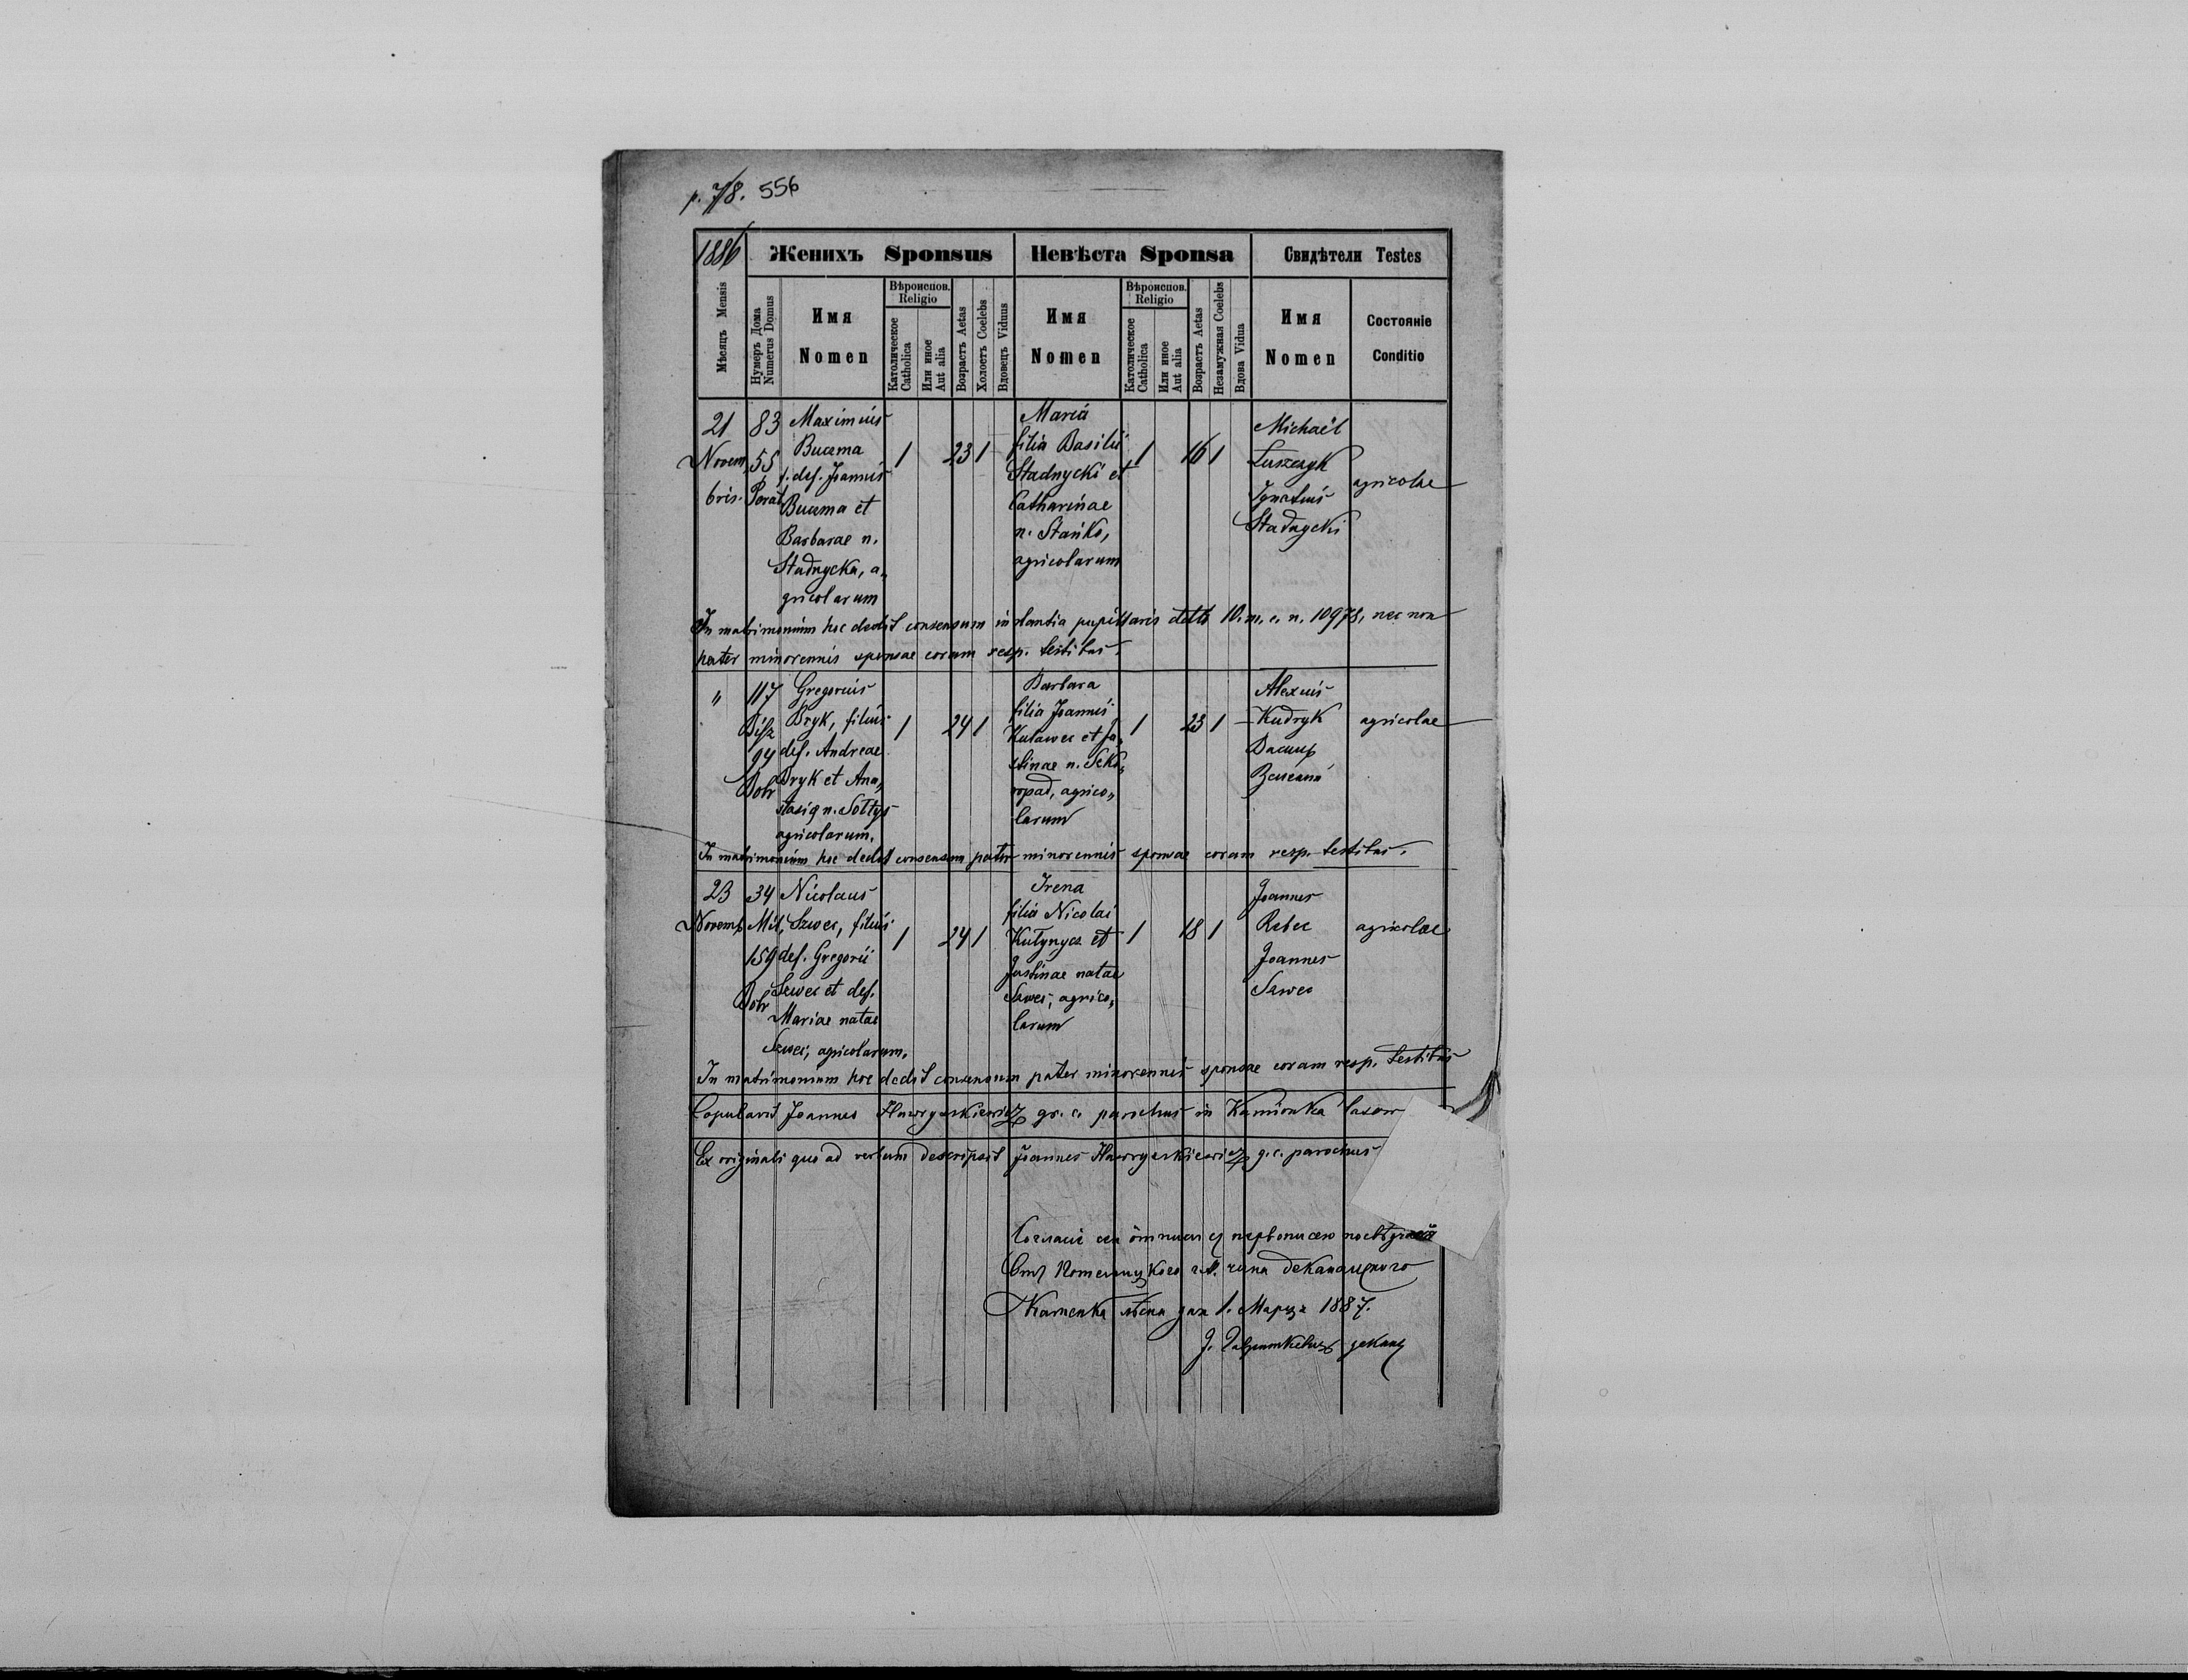 p. 7/8. 556
1886 Женихъ Sponsus Невѣста Sponsa Свидѣтели Testes
Мѣсяцъ Mensis
Нумеръ Дома Numerus Domus
Имя Nomen
Вѣроиспов. Religio
Католическое Catholica
Или иное Aut alia
Возрастъ Aetas
Холостъ Coelebs
Вдовецъ Viduus
Имя Nomen
Вѣроиспов. Religio
Католическое Catholica
Или иное Aut alia
Возрастъ Aetas
Незамужная Coelebs
Вдова Vidua
Имя Nomen
Состояніе Conditio
21
Novem
bris.
83
55
Maximus
Bucma
f. def. Joannis
Bucma et
Barbarae n.
Stadnycka, a„
gricolarum
1 23 1
Maria
filia Basilii
Stadnycki et
Catharinae
n. Stańko,
agricolarum
1 16 1
Michael
Luszczyk
Ignatius
Stadnycki
agricolae
In matrimonium hoc dedit consensum instantia pupillaris ddto 10. m. c. n. 10978, nec non
pater minorennis sponsae coram resp. testibus.
"
117
94
Dobr
Gregorius
Bryk, filius
def. Andreae
Bryk et Ana„
stasiae n. Sołtys
agricolarum.
1 24 1
Barbara
filia Joannis
Kulawec et Ju„
stinae n. Sko„
ropad, agrico„
larum
1 23 1
Alexius
Kudryk
agricolae
In matrimonium hoc dedit consensum pater minorennis sponsae coram resp. testibus.
23
Novemb
34
159
Dobr
Nicolaus
Szwec, filius
def. Gregorii
Szwec et def.
Mariae natae
Szwec, agricolarum.
1 24 1
Irena
filia Nicolai
Kułynycz et
Justinae natae
Szwec, agrico„
larum
1 18 1
Joannes
Rebec
Joannes
Szwec
agricolae
In matrimonium hoc dedit consensum pater minorennis sponsae coram resp. testibus
Copulavit Joannes Hawryszkiewicz gr. c. parochus in Kamionka
Ex originali quo ad verbum descripsit Joannes Hawryszkiewicz g. c. parochus
Каменка дня 1. Марца 1887.
деканъ